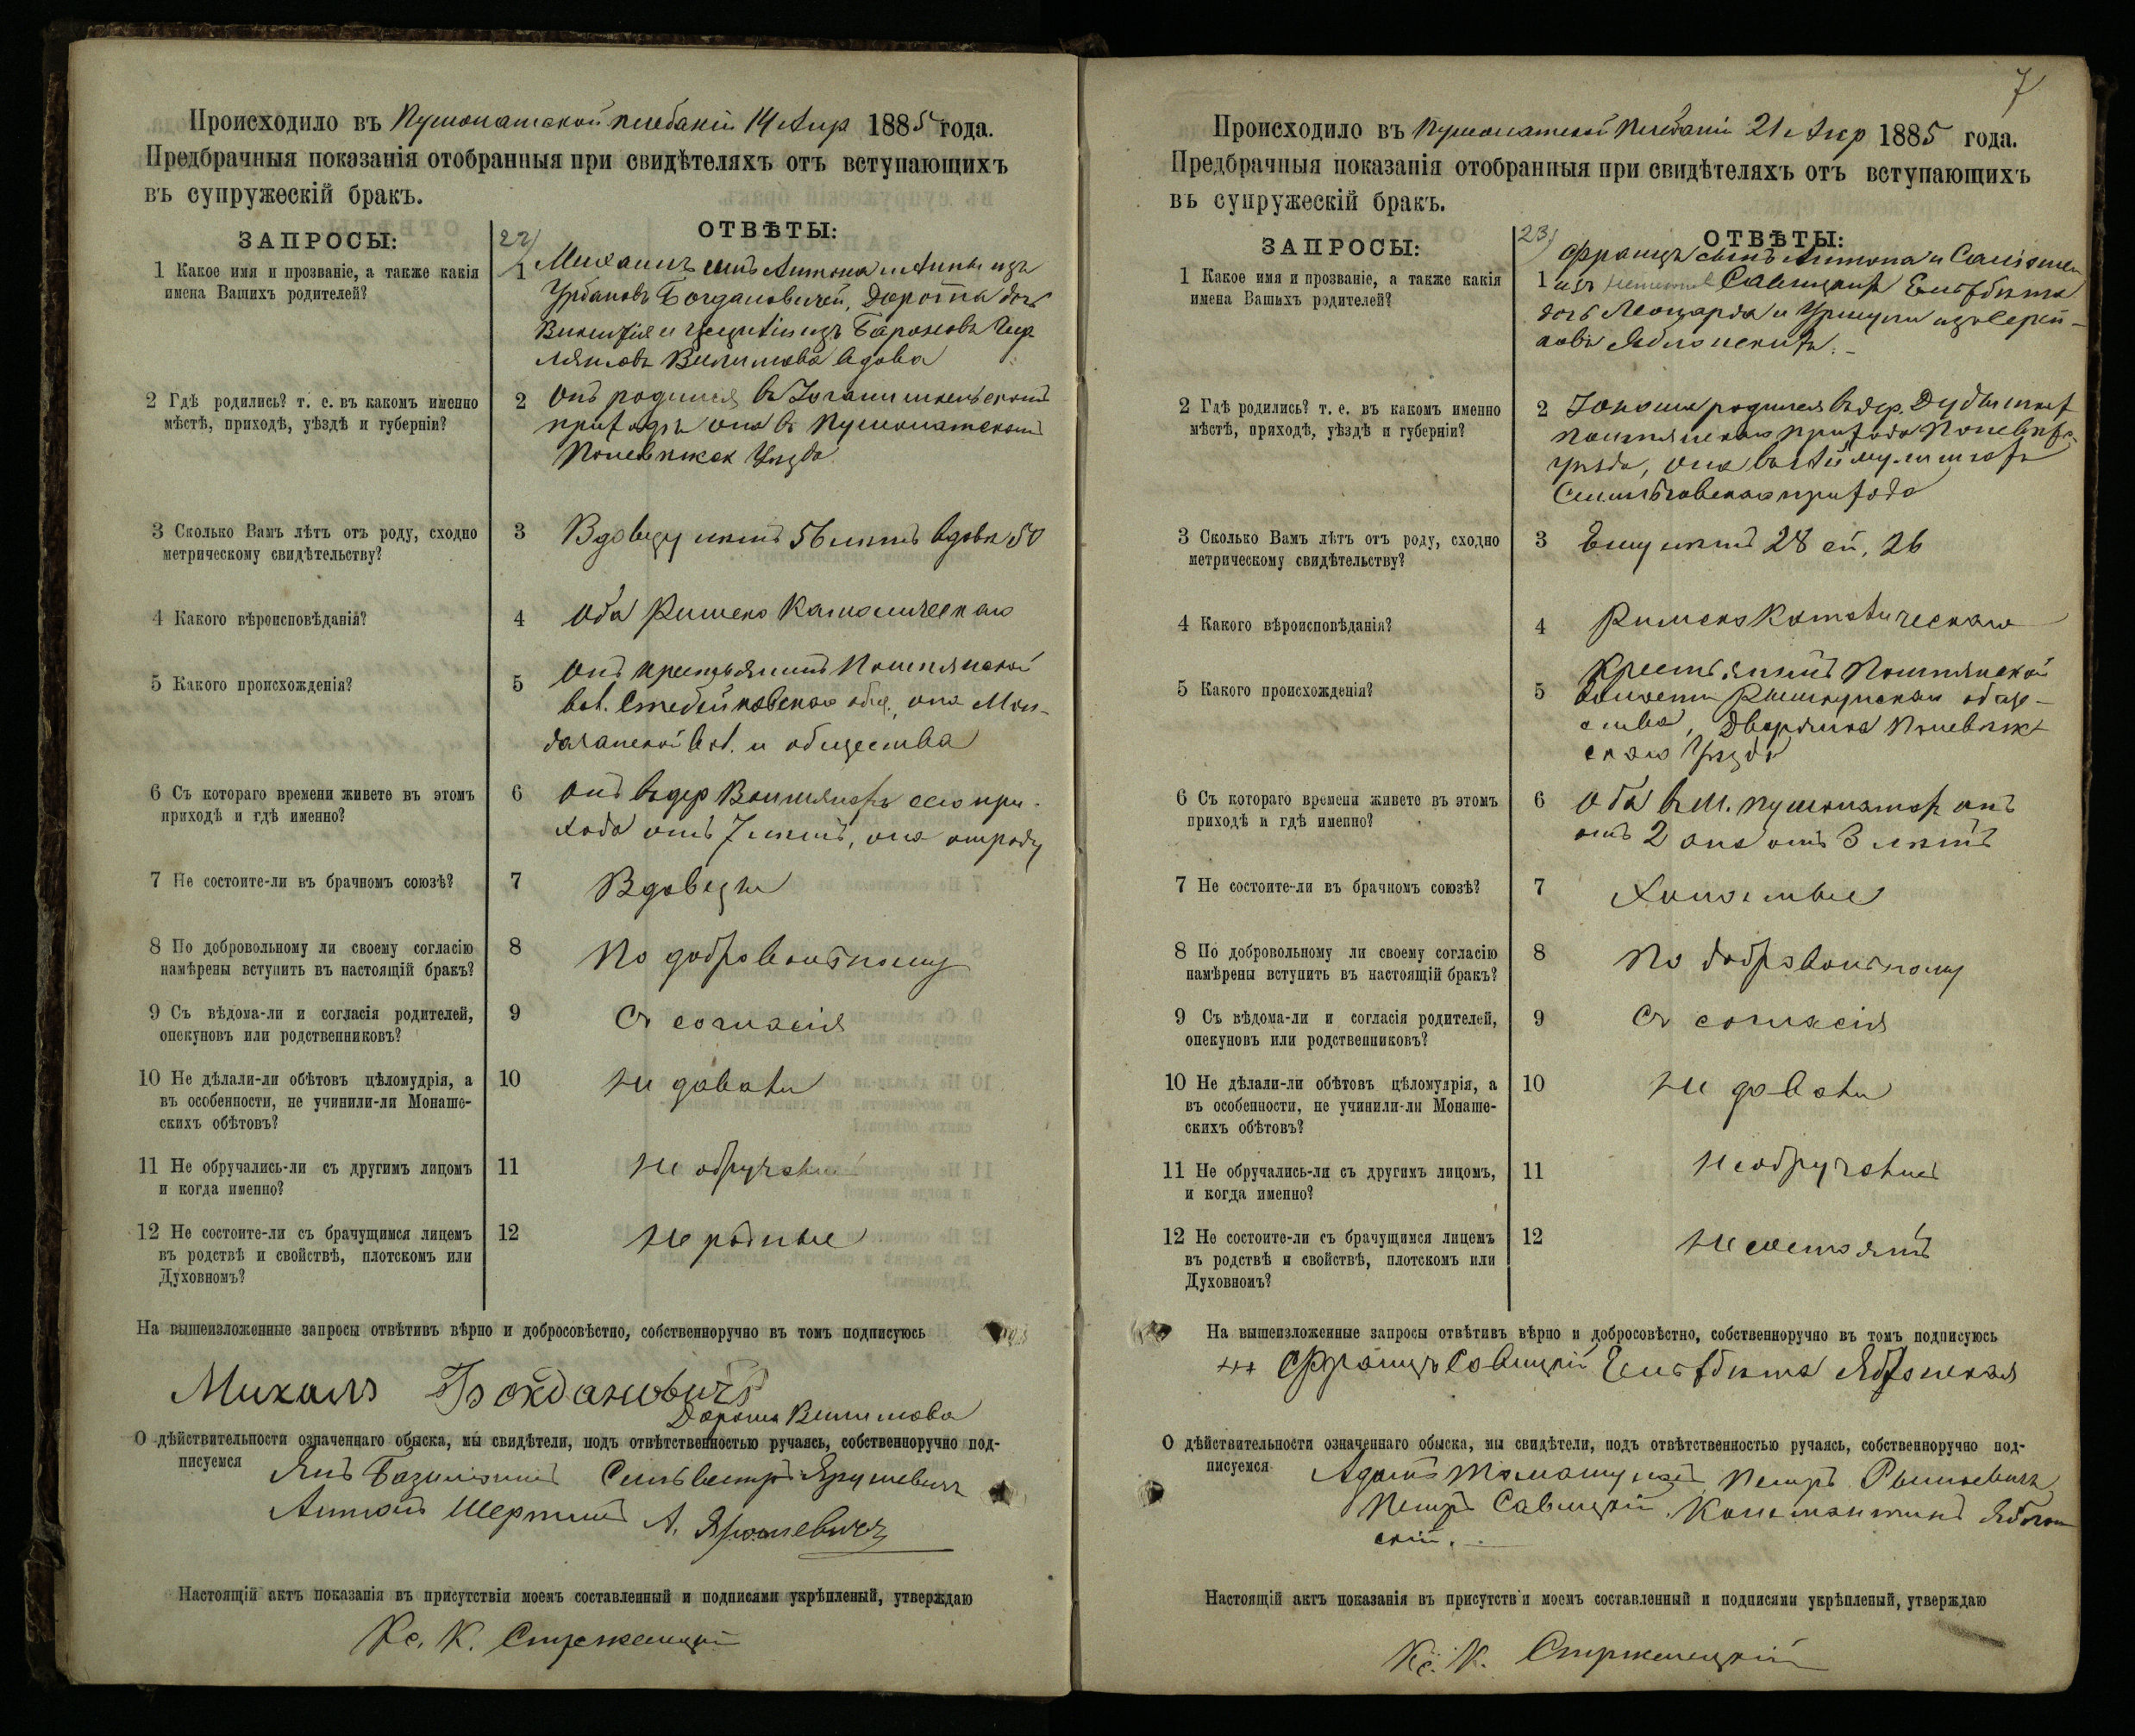 Происходило въ Пушолатской плебаніи 14 Апр 1885 года.
Предбрачныя показанія отобранныя при свидѣтеляхъ отъ вступающихъ
въ супружескій бракъ.
ЗАПРОСЫ:
22)
ОТВѢТЫ:
1 Какое имя и прозваніе, а также какія
имена Вашихъ родителей?
1 Михаилъ сынъ Антона и Анны изъ
Урбановъ Богдановичей, Доротта дочь
Викентія и изъ Бароновъ
вдова
2 Гдѣ родились? т. е. въ какомъ именно
мѣстѣ, приходѣ, уѣздѣ и губерніи?
2 Онъ родился въ
приходѣ она въ Пушолатскомъ
Поневѣжск Уѣзда
3 Сколько Вамъ лѣтъ отъ роду, сходно
метрическому свидѣтельству?
3 Вдовцу лѣтъ 56 лѣтъ вдовѣ 50
4 Какого вѣроисповѣданія?
4 Оба Римско Католическаго
5 Какого происхожденія?
5 Онъ крестьянинъ
вол. общ., она
вол. и общества
6 Съ котораго времени живете въ этомъ
приходѣ и гдѣ именно?
6 Онъ въ дер сего при-
хода отъ 7 лѣтъ, она отроду
7 Не состоите-ли въ брачномъ союзѣ?
7 Вдовцы
8 По добровольному ли своему согласію
намѣрены вступить въ настоящій бракъ?
8 По добровольному
9 Съ вѣдома-ли и согласія родителей,
опекуновъ или родственниковъ?
9 Съ согласія
10 Не дѣлали-ли обѣтовъ цѣломудрія, а
въ особенности, не учинили-ли Монаше-
скихъ обѣтовъ?
10 Не давали
11 Не обручались-ли съ другимъ лицомъ
и когда именно?
11 Не обручались
12 Не состоите-ли съ брачущимся лицемъ
въ родствѣ и свойствѣ, плотскомъ или
Духовномъ?
12 Не родные
На вышеизложенные запросы отвѣтивъ вѣрно и добросовѣстно, собственноручно въ томъ подписуюсь
Михалъ Богдановичъ
О дѣйствительности означеннаго обыска, мы свидѣтели, подъ отвѣтственностью ручаясь, собственноручно под-
писуемся Янъ Сильвестръ Ярушевичъ
Антонъ А. Ярошевичъ
Настоящій актъ показанія въ присутствіи моемъ составленный и подписями укрѣпленый, утверждаю
Кс. К. Стржемецкій
7
Происходило въ Пушолатской Плебаніи 21 Апр 1885 года.
Предбрачныя показанія отобранныя при свидѣтеляхъ отъ вступающихъ
въ супружескій бракъ.
ЗАПРОСЫ:
23)
ОТВѢТЫ:
1 Какое имя и прозваніе, а также какія
имена Вашихъ родителей?
Францъ сынъ Антона и
1 изъ Савицкихъ Ельзбѣта
дочь Леонарда и Уршули изъ
Яблонскихъ.
2 Гдѣ родились? т. е. въ какомъ именно
мѣстѣ, приходѣ, уѣздѣ и губерніи?
2 Юноша родился въ дер.
прихода Поневѣж
уѣзда, она въ
прихода
3 Сколько Вамъ лѣтъ отъ роду, сходно
метрическому свидѣтельству?
3 Ему лѣтъ 28 ей, 26
4 Какого вѣроисповѣданія?
4 Римско Католическаго
5 Какого происхожденія?
Крестьянинъ
5 волости обще-
ства, Дворянка Поневѣж-
скаго Уѣзда
6 Съ котораго времени живете въ этомъ
приходѣ и гдѣ именно?
6 Оба въ м. Пушолатахъ онъ
отъ 2 она отъ 3 лѣтъ
7 Не состоите-ли въ брачномъ союзѣ?
7 Холостые
8 По добровольному ли своему согласію
намѣрены вступить въ настоящій бракъ?
8 По добровольному
9 Съ вѣдома-ли и согласія родителей,
опекуновъ или родственниковъ?
9 Съ согласія
10 Не дѣлали-ли обѣтовъ цѣломудрія, а
въ особенности, не учинили-ли Монаше-
скихъ обѣтовъ?
10 Не давали
11 Не обручались-ли съ другимъ лицомъ,
и когда именно?
11 Не обручались
12 Не состоите-ли съ брачущимся лицемъ
въ родствѣ и свойствѣ, плотскомъ или
Духовномъ?
12 Не состоятъ
На вышеизложенные запросы отвѣтивъ вѣрно и добросовѣстно, собственноручно въ томъ подписуюсь
+++ Францъ Савицкій Ельзбѣта Яблонская
О дѣйствительности означеннаго обыска, мы свидѣтели, подъ отвѣтственностью ручаясь, собственноручно под-
писуемся Адамъ Петръ
Петръ Савицкій. Константинъ Яблон
скій.
Настоящій актъ показанія въ присутствіи моемъ составленный и подписями укрѣпленый, утверждаю
Кс. К. Стржемецкій